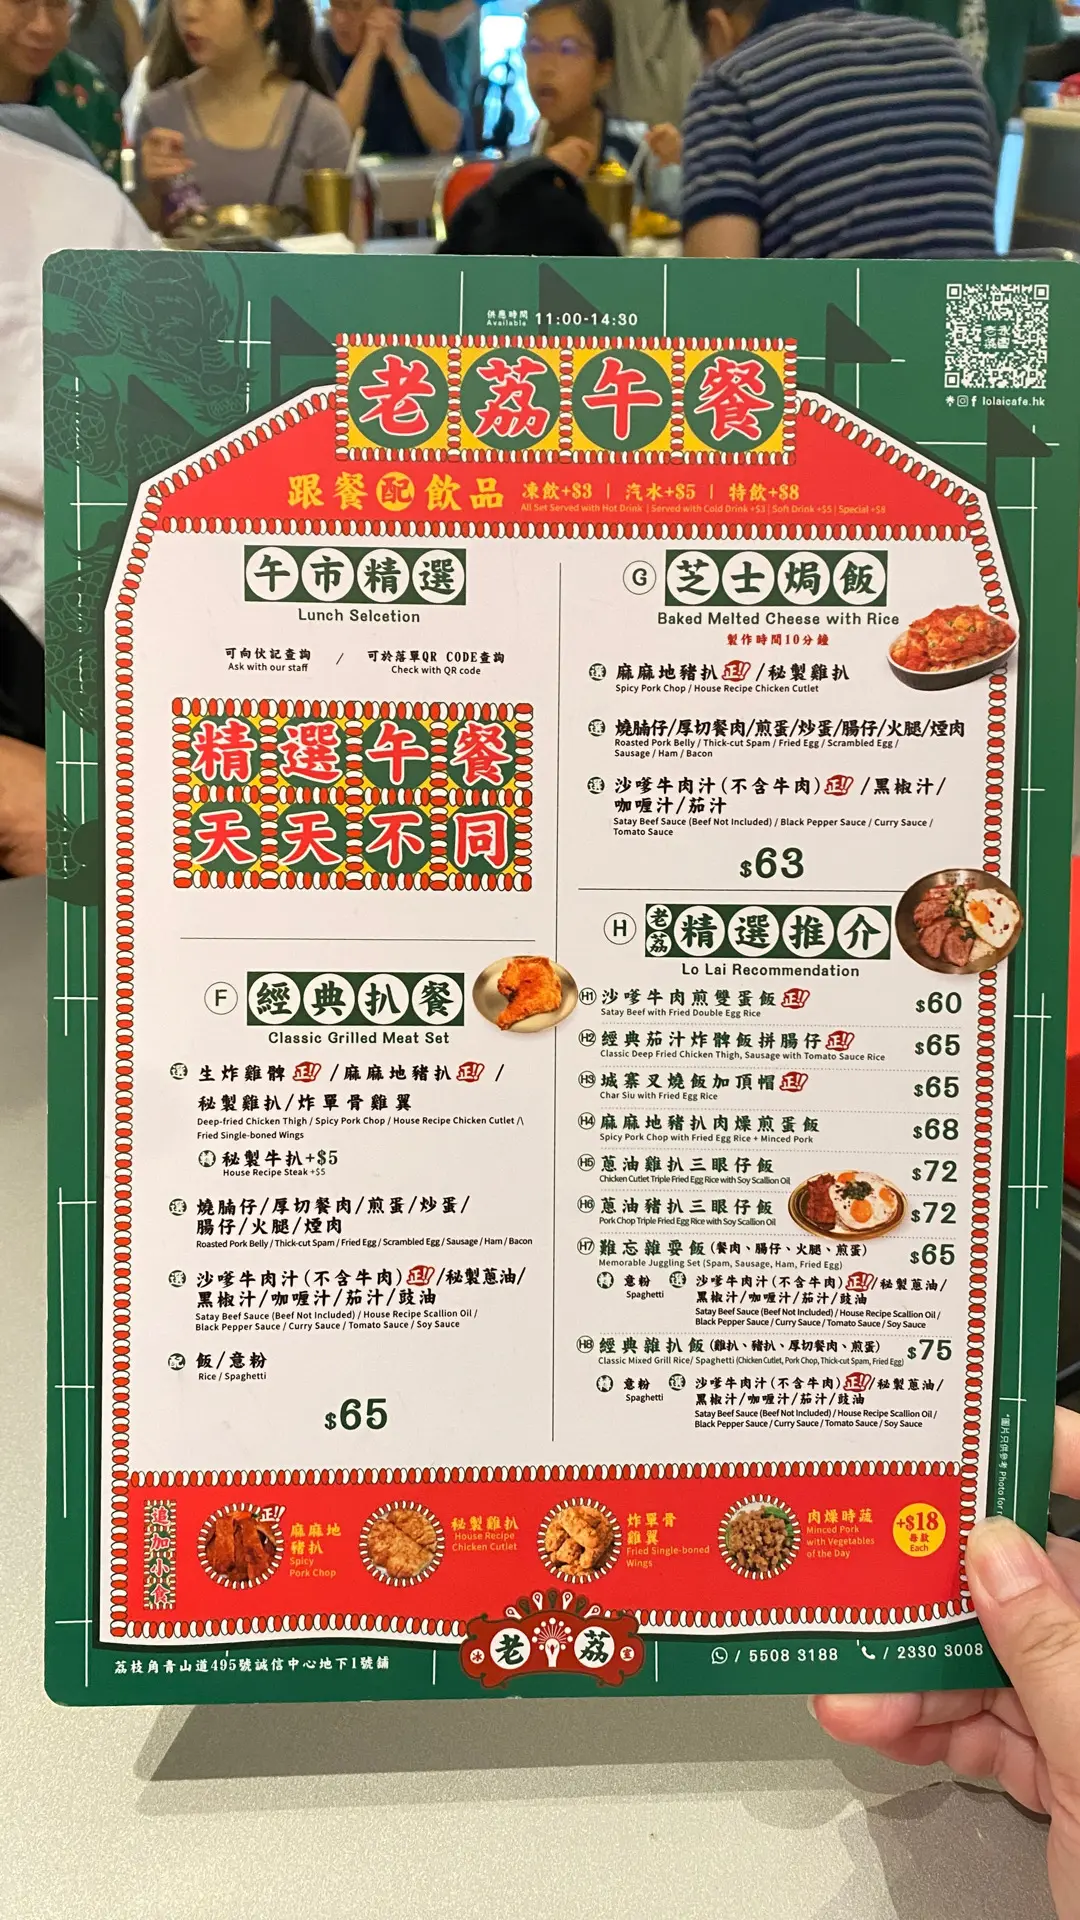 供應時間
Available 11:00-14:30
lolaicafe.hk
老荔午餐
跟餐配飲品 凍飲+$3 | 汽水+$5 | 特飲+$8
All Set Served with Hot Drink | Served with Cold Drink +$3 | Soft Drink +$5 | Special +$8
午市精選
Lunch Selcetion
可向伙記查詢 / 可於落單QR CODE查詢
Ask with our staff Check with QR code
精選午餐
天天不同
F 經典扒餐
Classic Grilled Meat Set
選 生炸雞髀 正!! /麻麻地豬扒 正!! /
秘製雞扒/炸單骨雞翼
Deep-fried Chicken Thigh / Spicy Pork Chop / House Recipe Chicken Cutlet /\
Fried Single-boned Wings
轉 秘製牛扒+$5
House Recipe Steak +$5
選 燒腩仔/厚切餐肉/煎蛋/炒蛋/
腸仔/火腿/煙肉
Roasted Pork Belly / Thick-cut Spam / Fried Egg / Scrambled Egg / Sausage / Ham / Bacon
選 沙嗲牛肉汁(不含牛肉) 正!! /秘製蔥油/
黑椒汁/咖喱汁/茄汁/豉油
Satay Beef Sauce (Beef Not Included) / House Recipe Scallion Oil /
Black Pepper Sauce / Curry Sauce / Tomato Sauce / Soy Sauce
配 飯/意粉
Rice / Spaghetti
$65
G 芝士焗飯
Baked Melted Cheese with Rice
製作時間10分鐘
選 麻麻地豬扒 正!! /秘製雞扒
Spicy Pork Chop / House Recipe Chicken Cutlet
選 燒腩仔/厚切餐肉/煎蛋/炒蛋/腸仔/火腿/煙肉
Roasted Pork Belly / Thick-cut Spam / Fried Egg / Scrambled Egg /
Sausage / Ham / Bacon
選 沙嗲牛肉汁(不含牛肉) 正!! /黑椒汁/
咖喱汁/茄汁
Satay Beef Sauce (Beef Not Included) / Black Pepper Sauce / Curry Sauce /
Tomato Sauce
$63
H 老荔 精選推介
Lo Lai Recommendation
H1 沙嗲牛肉煎雙蛋飯 正!! $60
Satay Beef with Fried Double Egg Rice
H2 經典茄汁炸髀飯拼腸仔 正!! $65
Classic Deep Fried Chicken Thigh, Sausage with Tomato Sauce Rice
H3 城寨叉燒飯加頂帽 正!! $65
Char Siu with Fried Egg Rice
H4 麻麻地豬扒肉燥煎蛋飯 $68
Spicy Pork Chop with Fried Egg Rice + Minced Pork
H5 蔥油雞扒三眼仔飯 $72
Chicken Cutlet Triple Fried Egg Rice with Soy Scallion Oil
H6 蔥油豬扒三眼仔飯 $72
Pork Chop Triple Fried Egg Rice with Soy Scallion Oil
H7 難忘雜耍飯 (餐肉、腸仔、火腿、煎蛋) $65
Memorable Juggling Set (Spam, Sausage, Ham, Fried Egg)
轉 意粉 選 沙嗲牛肉汁(不含牛肉) 正!! /秘製蔥油/
Spaghetti 黑椒汁/咖喱汁/茄汁/豉油
Satay Beef Sauce (Beef Not Included) / House Recipe Scallion Oil /
Black Pepper Sauce / Curry Sauce / Tomato Sauce / Soy Sauce
H8 經典雜扒飯 (雞扒、豬扒、厚切餐肉、煎蛋) $75
Classic Mixed Grill Rice/ Spaghetti (Chicken Cutlet, Pork Chop, Thick-cut Spam, Fried Egg)
轉 意粉 選 沙嗲牛肉汁(不含牛肉) 正!! /秘製蔥油/
Spaghetti 黑椒汁/咖喱汁/茄汁/豉油
Satay Beef Sauce (Beef Not Included) / House Recipe Scallion Oil /
Black Pepper Sauce / Curry Sauce / Tomato Sauce / Soy Sauce
*圖片只供參考 Photo for
追加小食
正!!
麻麻地
豬扒
Spicy
Pork Chop
秘製雞扒
House Recipe
Chicken Cutlet
炸單骨
雞翼
Fried Single-boned
Wings
肉燥時蔬
Minced Pork
with Vegetables
of the Day
+$18
每款
Each
冰 老 荔 室
荔枝角青山道495號誠信中心地下1號舖
/ 5508 3188 / 2330 3008